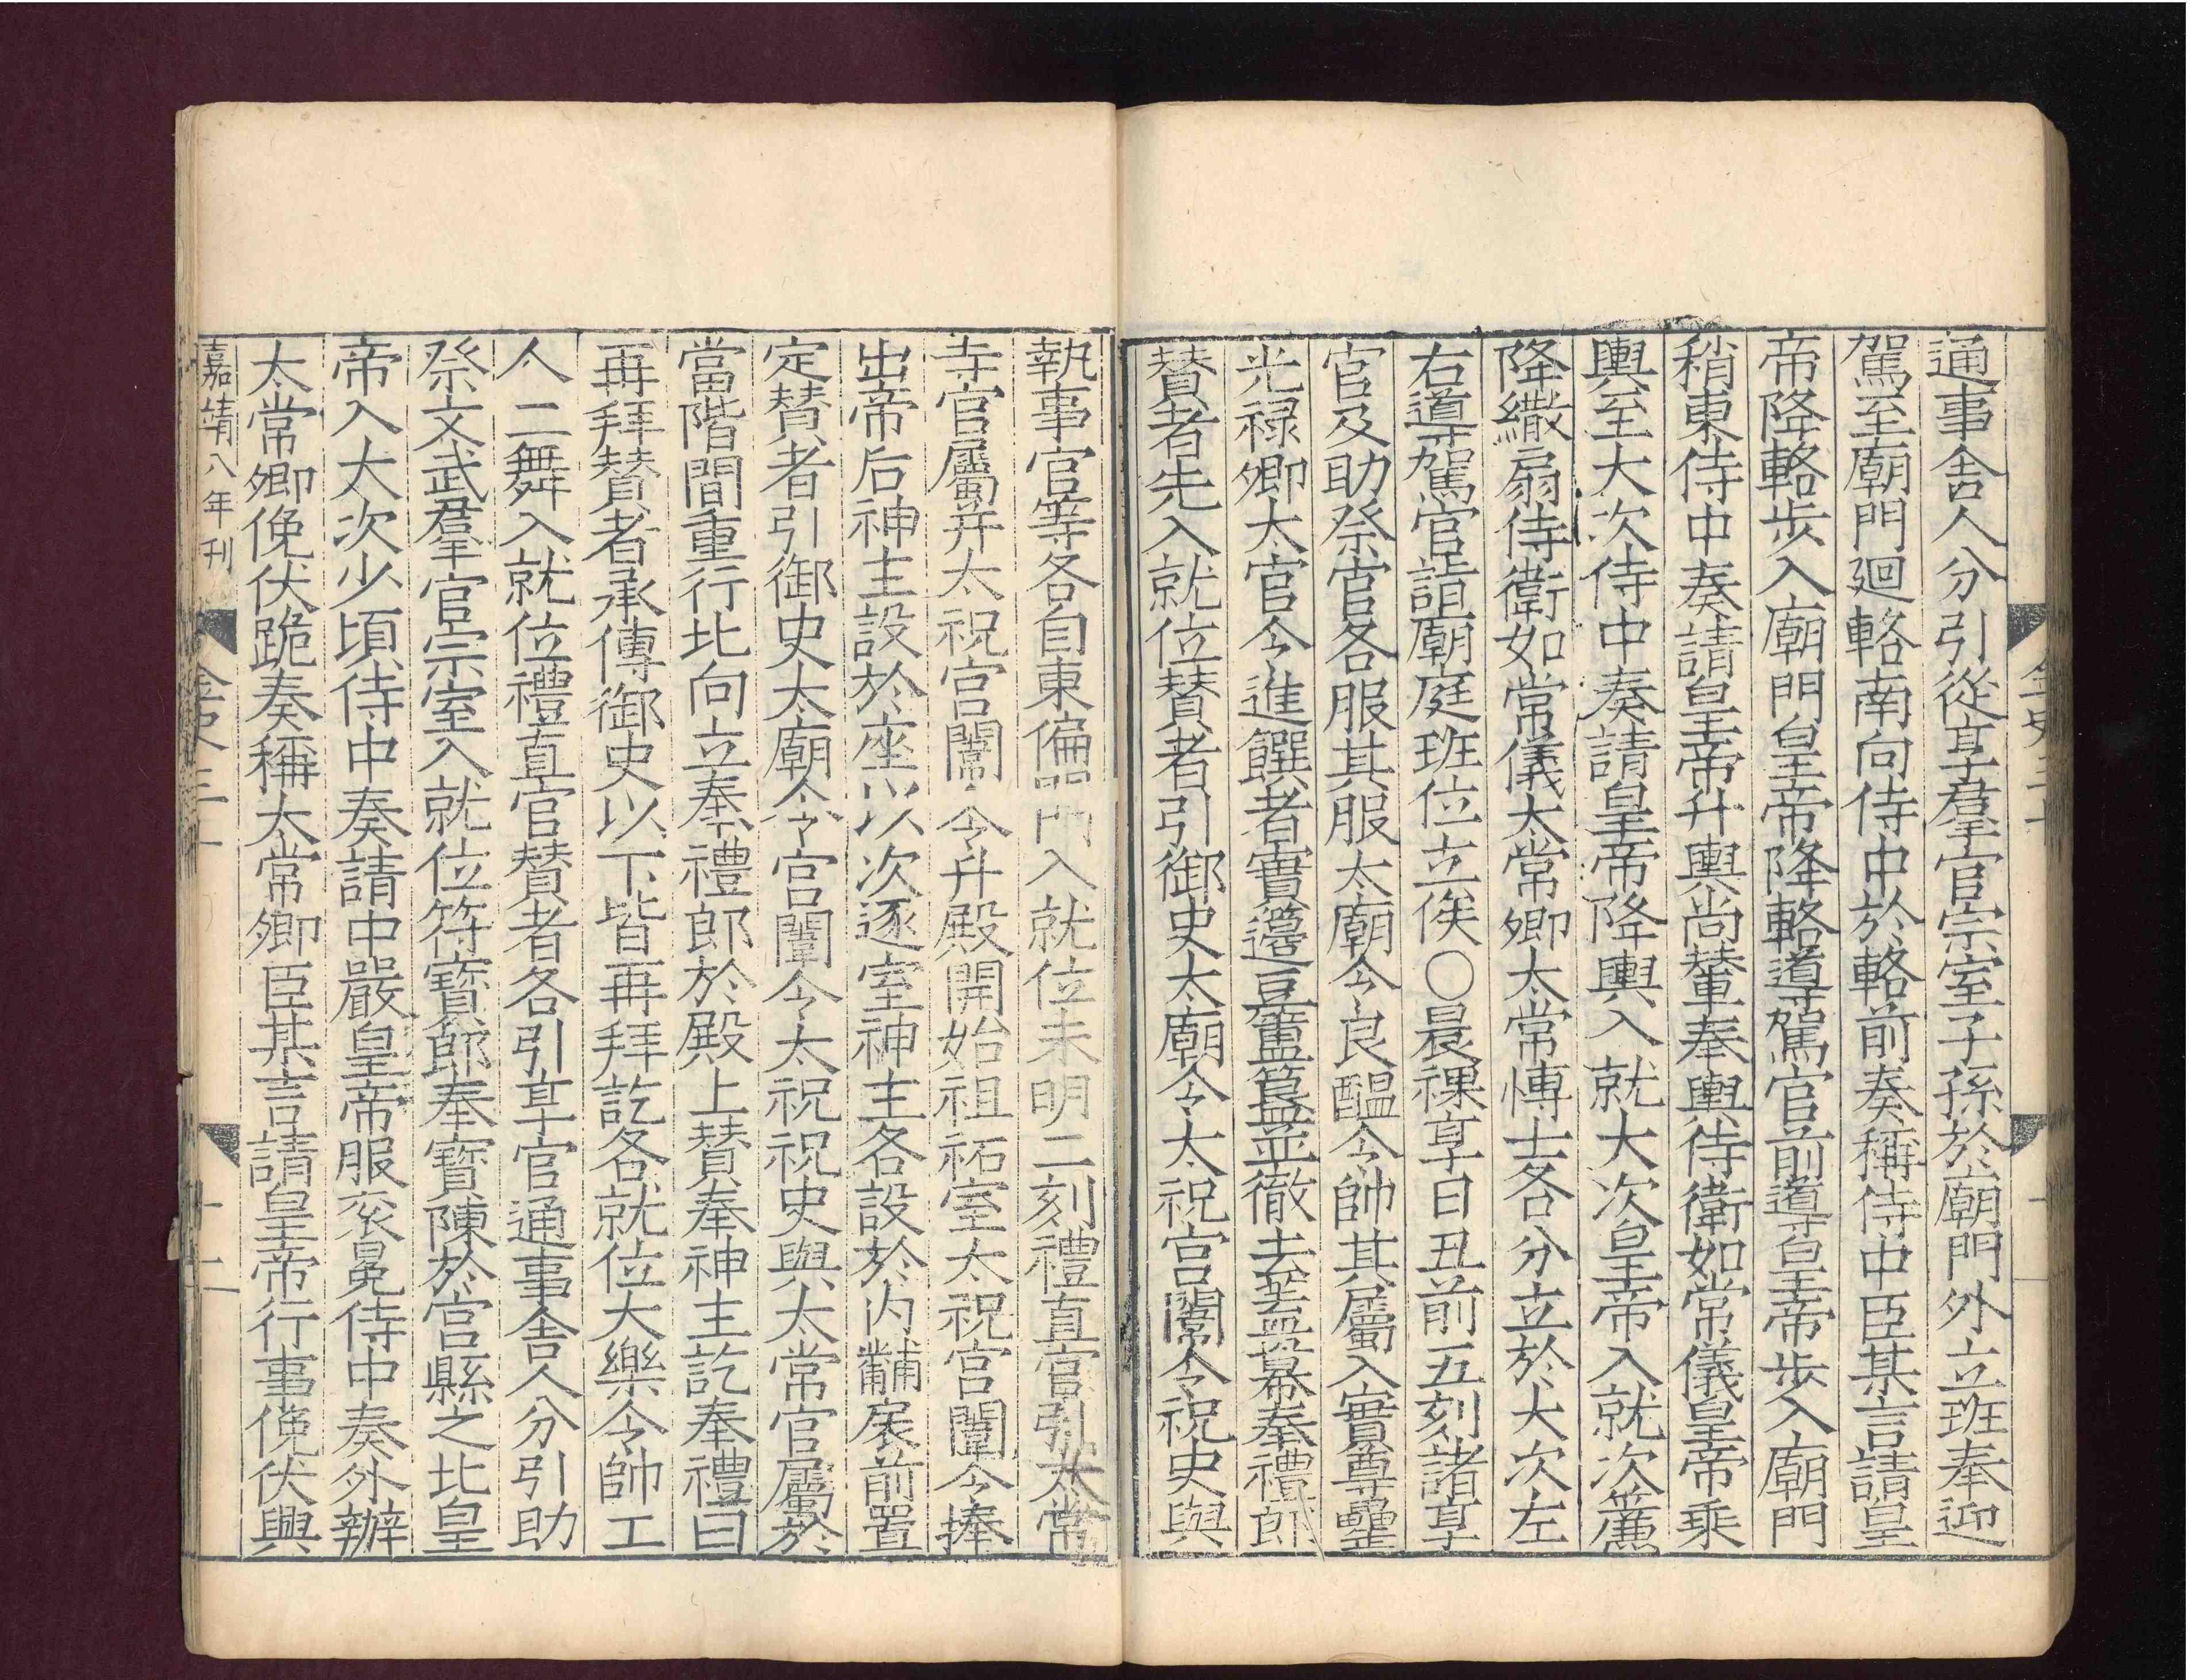 通事舎人分引從享羣官宗室子孫於廟門外立班奉迎
駕至廟門廻輅南向侍中於輅前奏稱侍中臣某言請皇
帝降輅步入廟門皇帝降輅導駕官前導皇帝步入廟門
稍東侍中奏請皇帝升輿尚輦奉輿侍衛如常儀皇帝乘
輿至大次侍中奏請皇帝降輿入就大次皇帝入就次簾
降繖扇侍衛如常儀太常卿太常愽士各分立於大次左
右導駕官詣廟庭班位立俟○晨祼享日丑前五刻諸享
官及助祭官各服其服太廟令良醞令帥其屬入實尊罍
光禄卿太官令進饌者實籩豆簠簋並徹去蓋羃奉禮郎
賛者先入就位賛者引御史太廟令太祝宮闈令祝史與
執事官等各自東偏門入就位未明二刻禮直官引太常
寺官屬并太祝宮闈令升殿開始祖祏室太祝宮闈令捧
出帝后神主設於座以次逐室神主各設於内黼扆前置
定賛者引御史太廟令宮闈令太祝祝史與太常官屬於
當階間重行北向立奉禮郎於殿上賛奉神主訖奉禮曰
再拜賛者承傳御史以下皆再拜訖各就位大樂令帥工
人二舞入就位禮直官賛者各引享官通事舎人分引助
祭文武羣官宗室入就位符寳郎奉寳陳於宮縣之北皇
帝入大次少頃侍中奏請中嚴皇帝服衮冕侍中奏外辦
太常卿俛伏跪奏稱太常卿臣某言請皇帝行事俛伏興
嘉靖八年刊
金史三十
十二